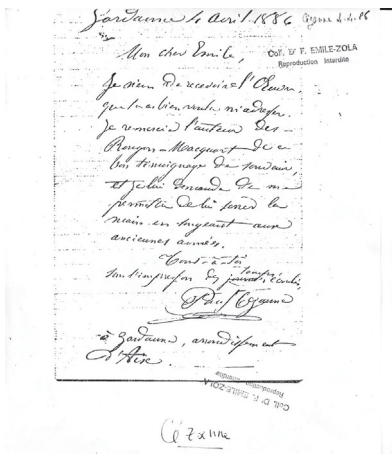 Gardanne 4 Avril 1886
Mon cher Emile,
Coll. Dr F. EMILE-ZOLA
Reproduction Interdite
Je viens de recevoir l'Œuvre
que tu as bien voulu m'adresser.
Je remercie l'auteur des
Rougon-Macquart de ce
bon témoignage de souvenir,
et je lui demande de me
permettre de lui serrer la
main en songeant aux
anciennes années.
Tout à toi
sous l'impression des temps écoulés
Paul Cezanne
à Gardanne, arrondissement
d'Aix.
Coll. Dr F. EMILE-ZOLA
Reproduction Interdite